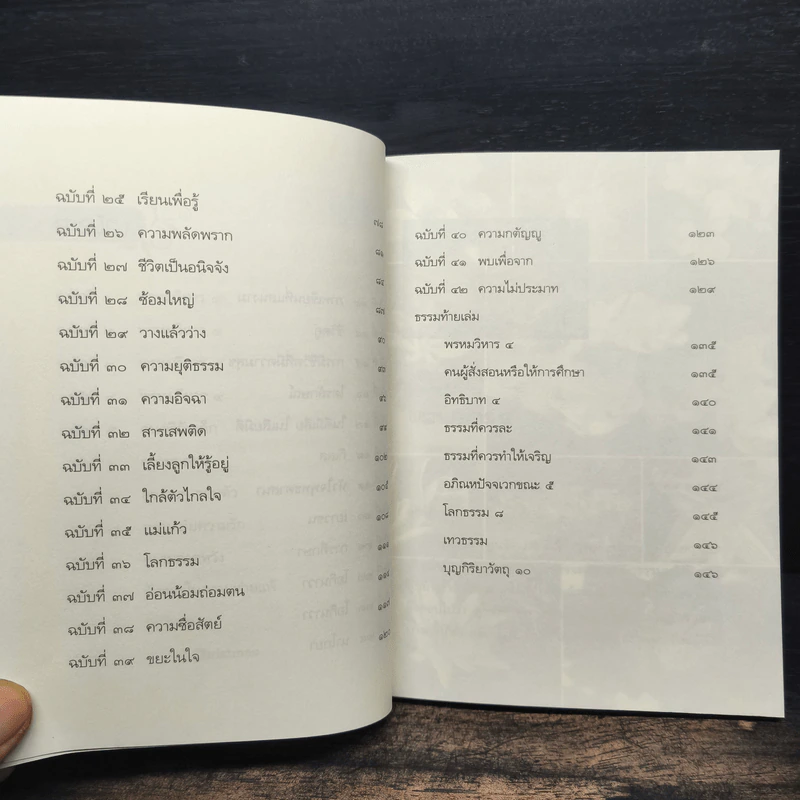 ฉบับที่ ๒๕ เรียนเพื่อรู้ ๗๘
ฉบับที่ ๒๖ ความพลัดพราก ๘๑
ฉบับที่ ๒๗ ชีวิตเป็นอนิจจัง ๘๔
ฉบับที่ ๒๘ ซ้อมใหญ่ ๘๗
ฉบับที่ ๒๙ วางแล้วว่าง ๙๐
ฉบับที่ ๓๐ ความยุติธรรม
ฉบับที่ ๓๑ ความอิจฉา
ฉบับที่ ๓๒ สารเสพติด
ฉบับที่ ๓๓ เลี้ยงลูกให้รู้อยู่ ๑๐๒
ฉบับที่ ๓๔ ใกล้ตัวไกลใจ ๑๐๕
ฉบับที่ ๓๕ แม่แก้ว ๑๐๘
ฉบับที่ ๓๖ โลกธรรม
ฉบับที่ ๓๗ อ่อนน้อมถ่อมตน
ฉบับที่ ๓๘ ความซื่อสัตย์
ฉบับที่ ๓๙ ขยะในใจ ๑๒๐
ฉบับที่ ๔๐ ความกตัญญู ๑๒๓
ฉบับที่ ๔๑ พบเพื่อจาก ๑๒๖
ฉบับที่ ๔๒ ความไม่ประมาท ๑๒๙
ธรรมท้ายเล่ม
พรหมวิหาร ๔ ๑๓๕
คนผู้สั่งสอนหรือให้การศึกษา ๑๓๕
อิทธิบาท ๔ ๑๔๐
ธรรมที่ควรละ ๑๔๑
ธรรมที่ควรทำให้เจริญ ๑๔๓
อภิณหปัจจเวกขณะ ๕ ๑๔๔
โลกธรรม ๘ ๑๔๕
เทวธรรม ๑๔๖
บุญกิริยาวัตถุ ๑๐ ๑๔๖